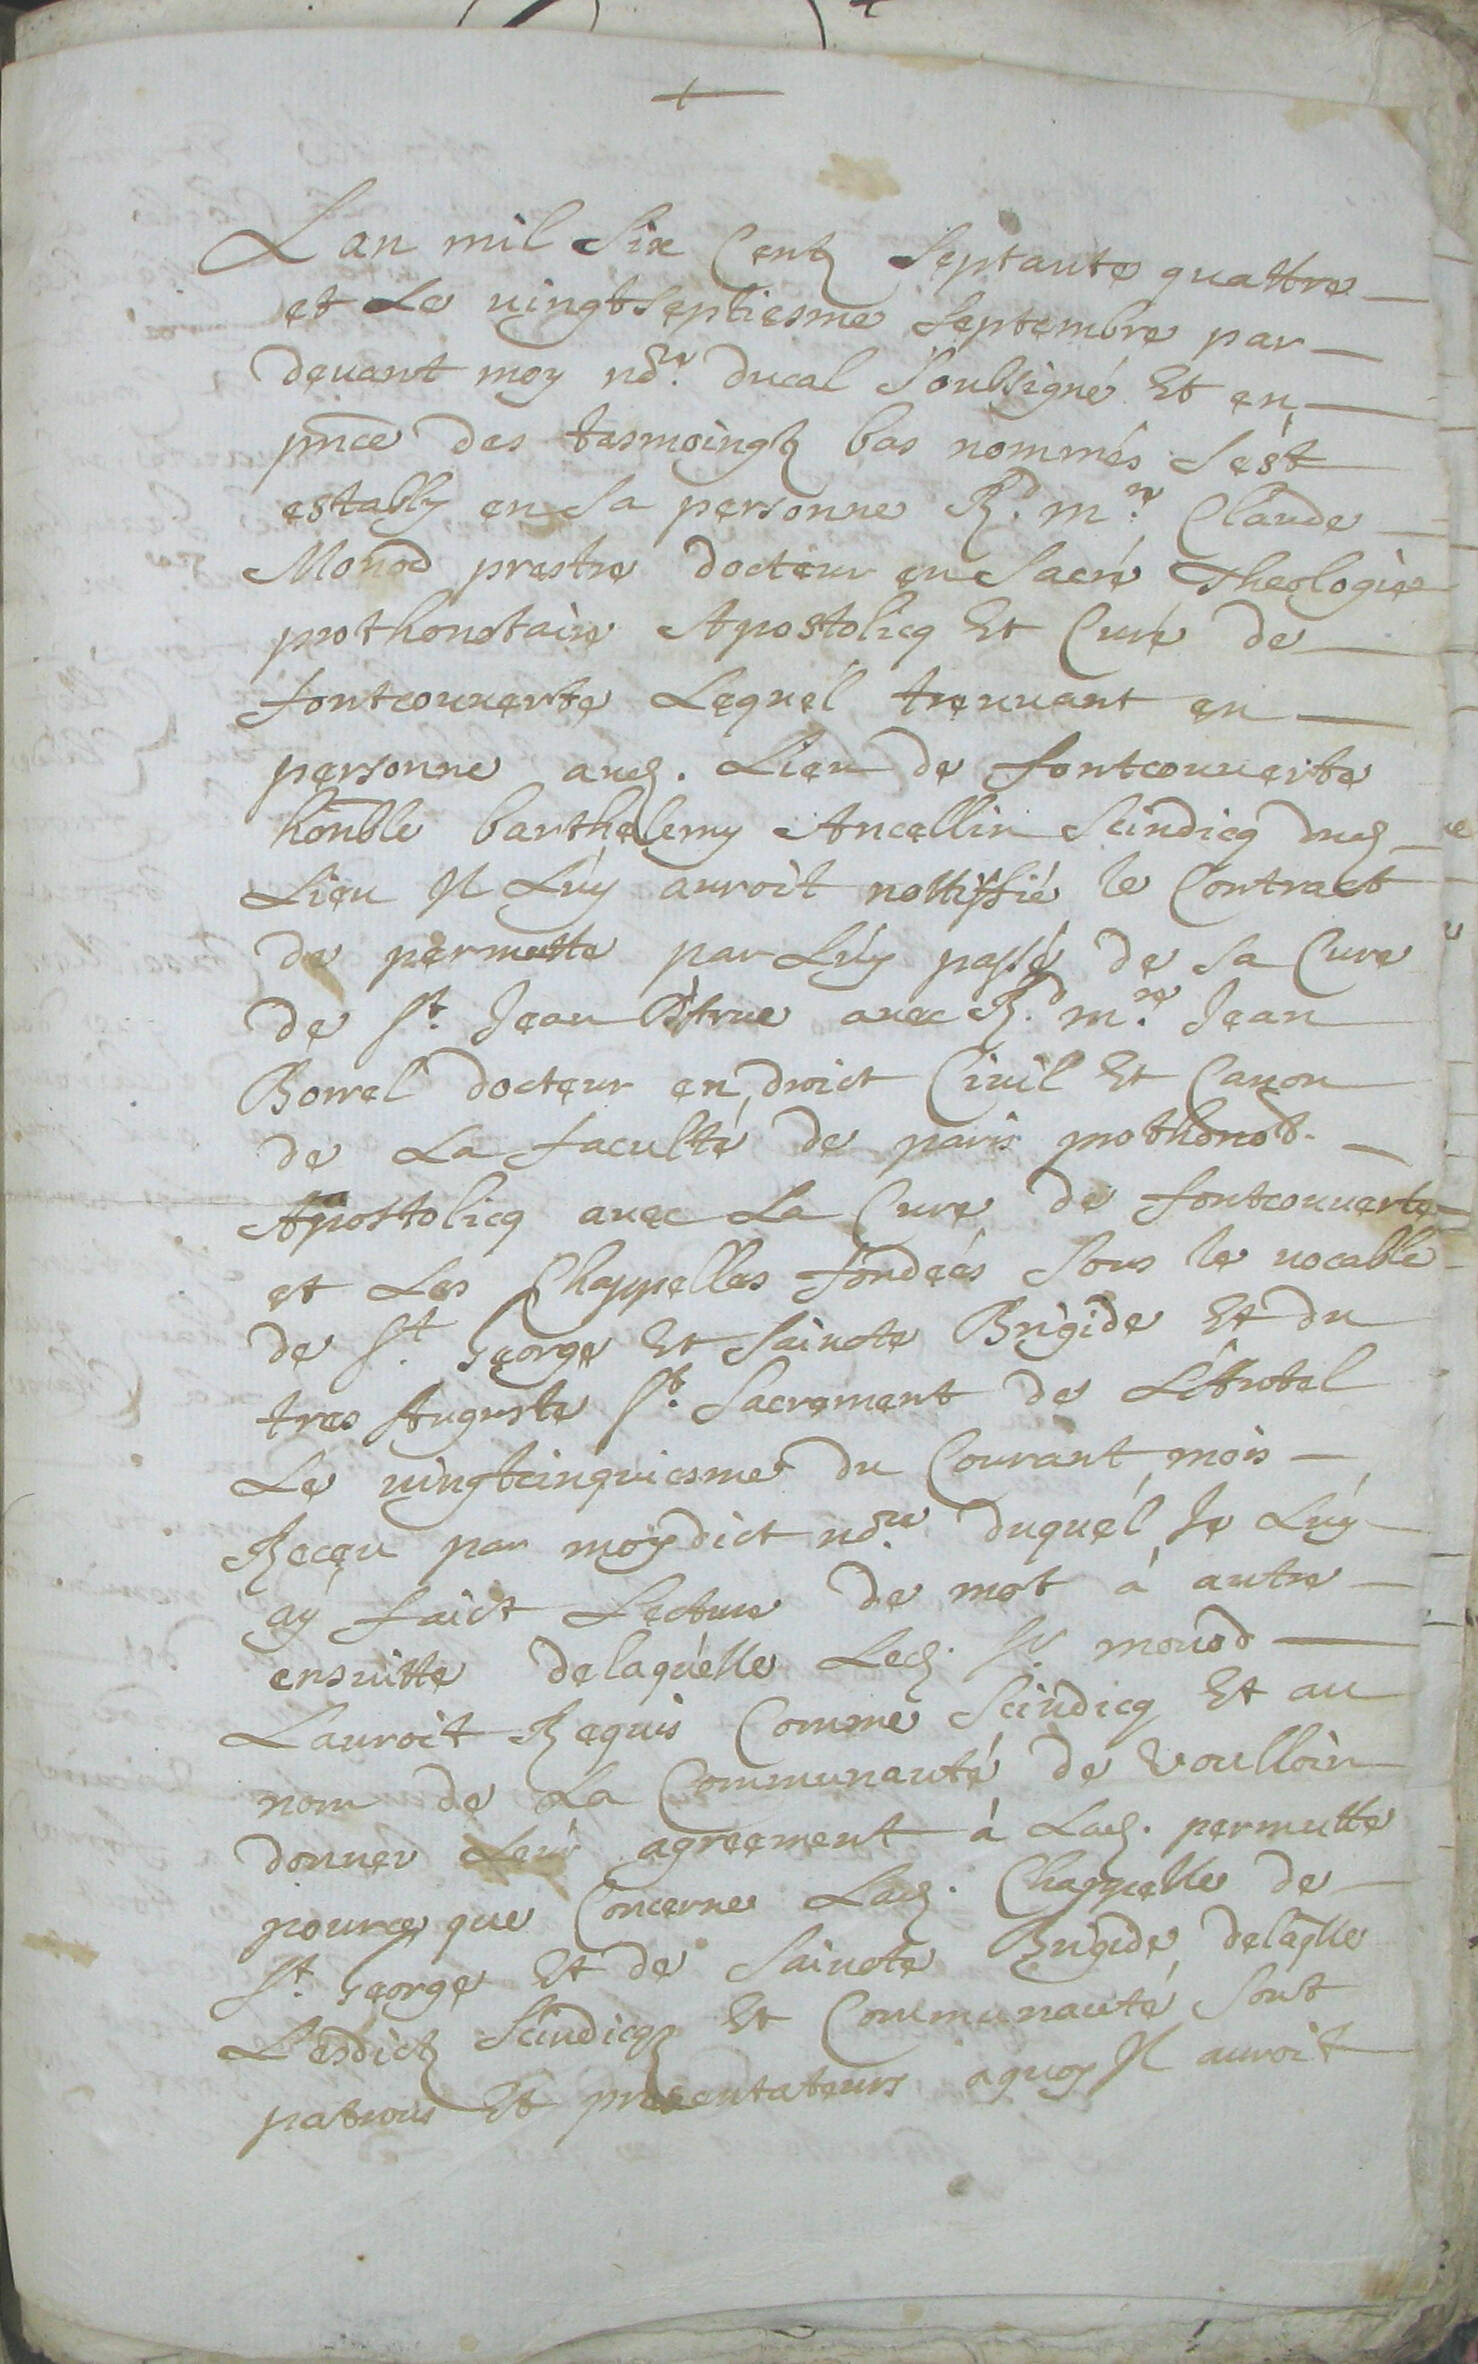 Lan mil Six Centz Septante quattre
et Le vingtseptiesme Septembre par
devant moy nore. ducal Soubsigné Et en
pnce des tesmoingz bas nommés Sést
estably en Sa personne Rd. mre. Claude
Monod prestre docteur en Sacré Theologie
prothonotaire Apostolicq Et Curé de
fontcouverte Lequel treuvant en
personne aud. Lieu de fontcouverte
honble barthelemy Ancellin Scindicq dud.
Lieu Il Luy auroit nottiffié le Contract
de permutte par Luy passé de sa Cure
de St. Jean avec Rd. mre. Jean
Borrel docteur en droict Civil Et Canon
de La faculté de paris prothonot.
Apostolicq avec La Cure de fontcouverte
et Les Chappelles fondées Sous le vocable
de St. George Et Saincte Brigide Et du
tres Auguste St. Sacrement de L'Authel
Le vingtcinquiesme du Courant mois
Receu par moydict nore. duquél Je Luy
ay faict Lecture de mot á autre
ensuitte delaquelle Led. Sr. monod
Lauroit Requis Comme Scindicq Et au
nom de La Communauté de Voulloir
donner Leur agreement á Lad. permutte
pource que Concerne Lad. Chappelle de
St. George Et de Saincte Brigide delaqlle
Lesdictz Scindicqz Et Communauté Sont
patrons Et presentateurs aquoy Il auroit